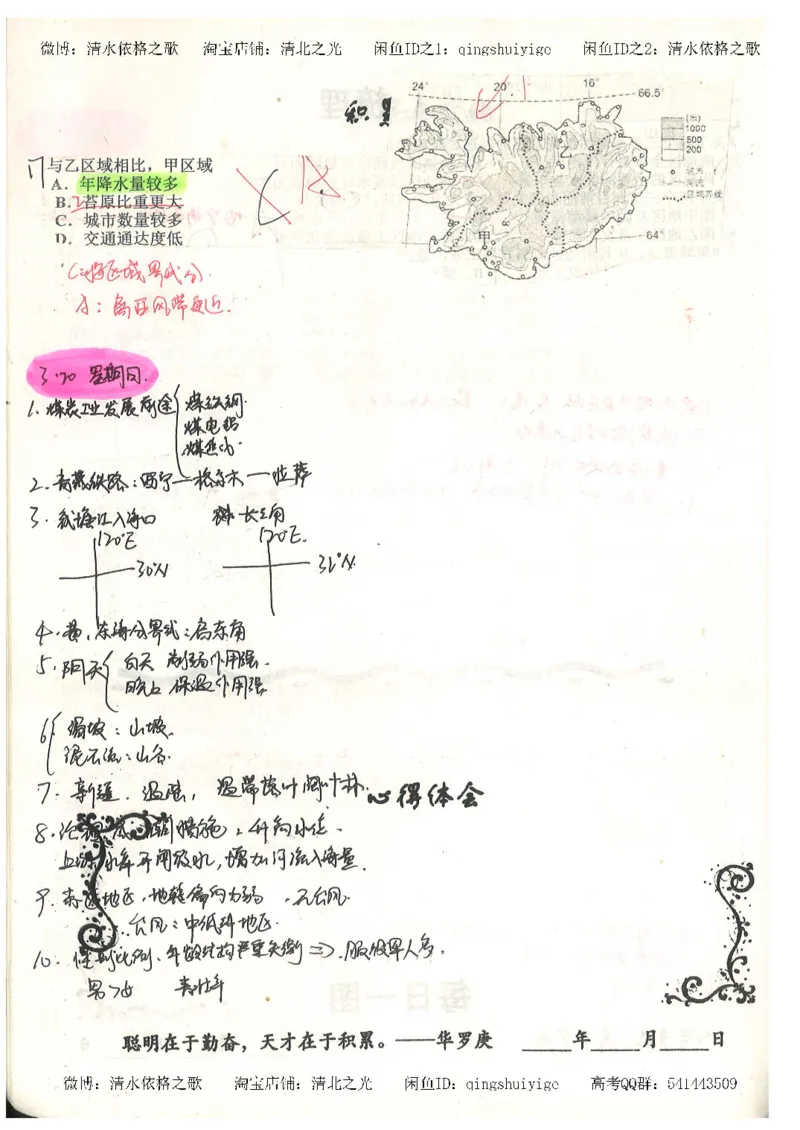 微博：清水依格之歌 淘宝店铺：清北之光 闲鱼ID之1：qingshuiyige 闲鱼ID之2：清水依格之歌
积累
24° 20° 16° 66.5°
(m)
1000
500
200
城市
河流
区域界线
乙
甲
64°
17与乙区域相比，甲区域
A．年降水量较多
B．苔原比重更大
C．城市数量较多
D．交通通达度低
A：离西风带更近.
3.20 星期日.
1. 煤炭工业发展前途 煤炭钢
煤电铝
煤焦化
2. 青藏铁路：西宁—格尔木—拉萨
3. 钱塘江入海口 长三角
120°E 120°E.
30°N 32°N
4. 黄、东海分界线：启东角
5. 阴天 白天 削弱作用强.
晚上 保温作用强.
6. 滑坡：山坡.
泥石流：山谷.
7. 新疆. 温带落叶阔叶林.
心得体会
8. 措施
上游水库开闸放水，增加河流入海量.
9. 赤道地区，地转偏向力弱 .无台风.
台风：中低纬地区.
10. 性别比例、年龄结构严重失衡 ⇒ 服役军人多.
男>女 青壮年
聪明在于勤奋，天才在于积累。——华罗庚 _____年_____月_____日
微博：清水依格之歌 淘宝店铺：清北之光 闲鱼ID：qingshuiyige 高考QQ群：541443509